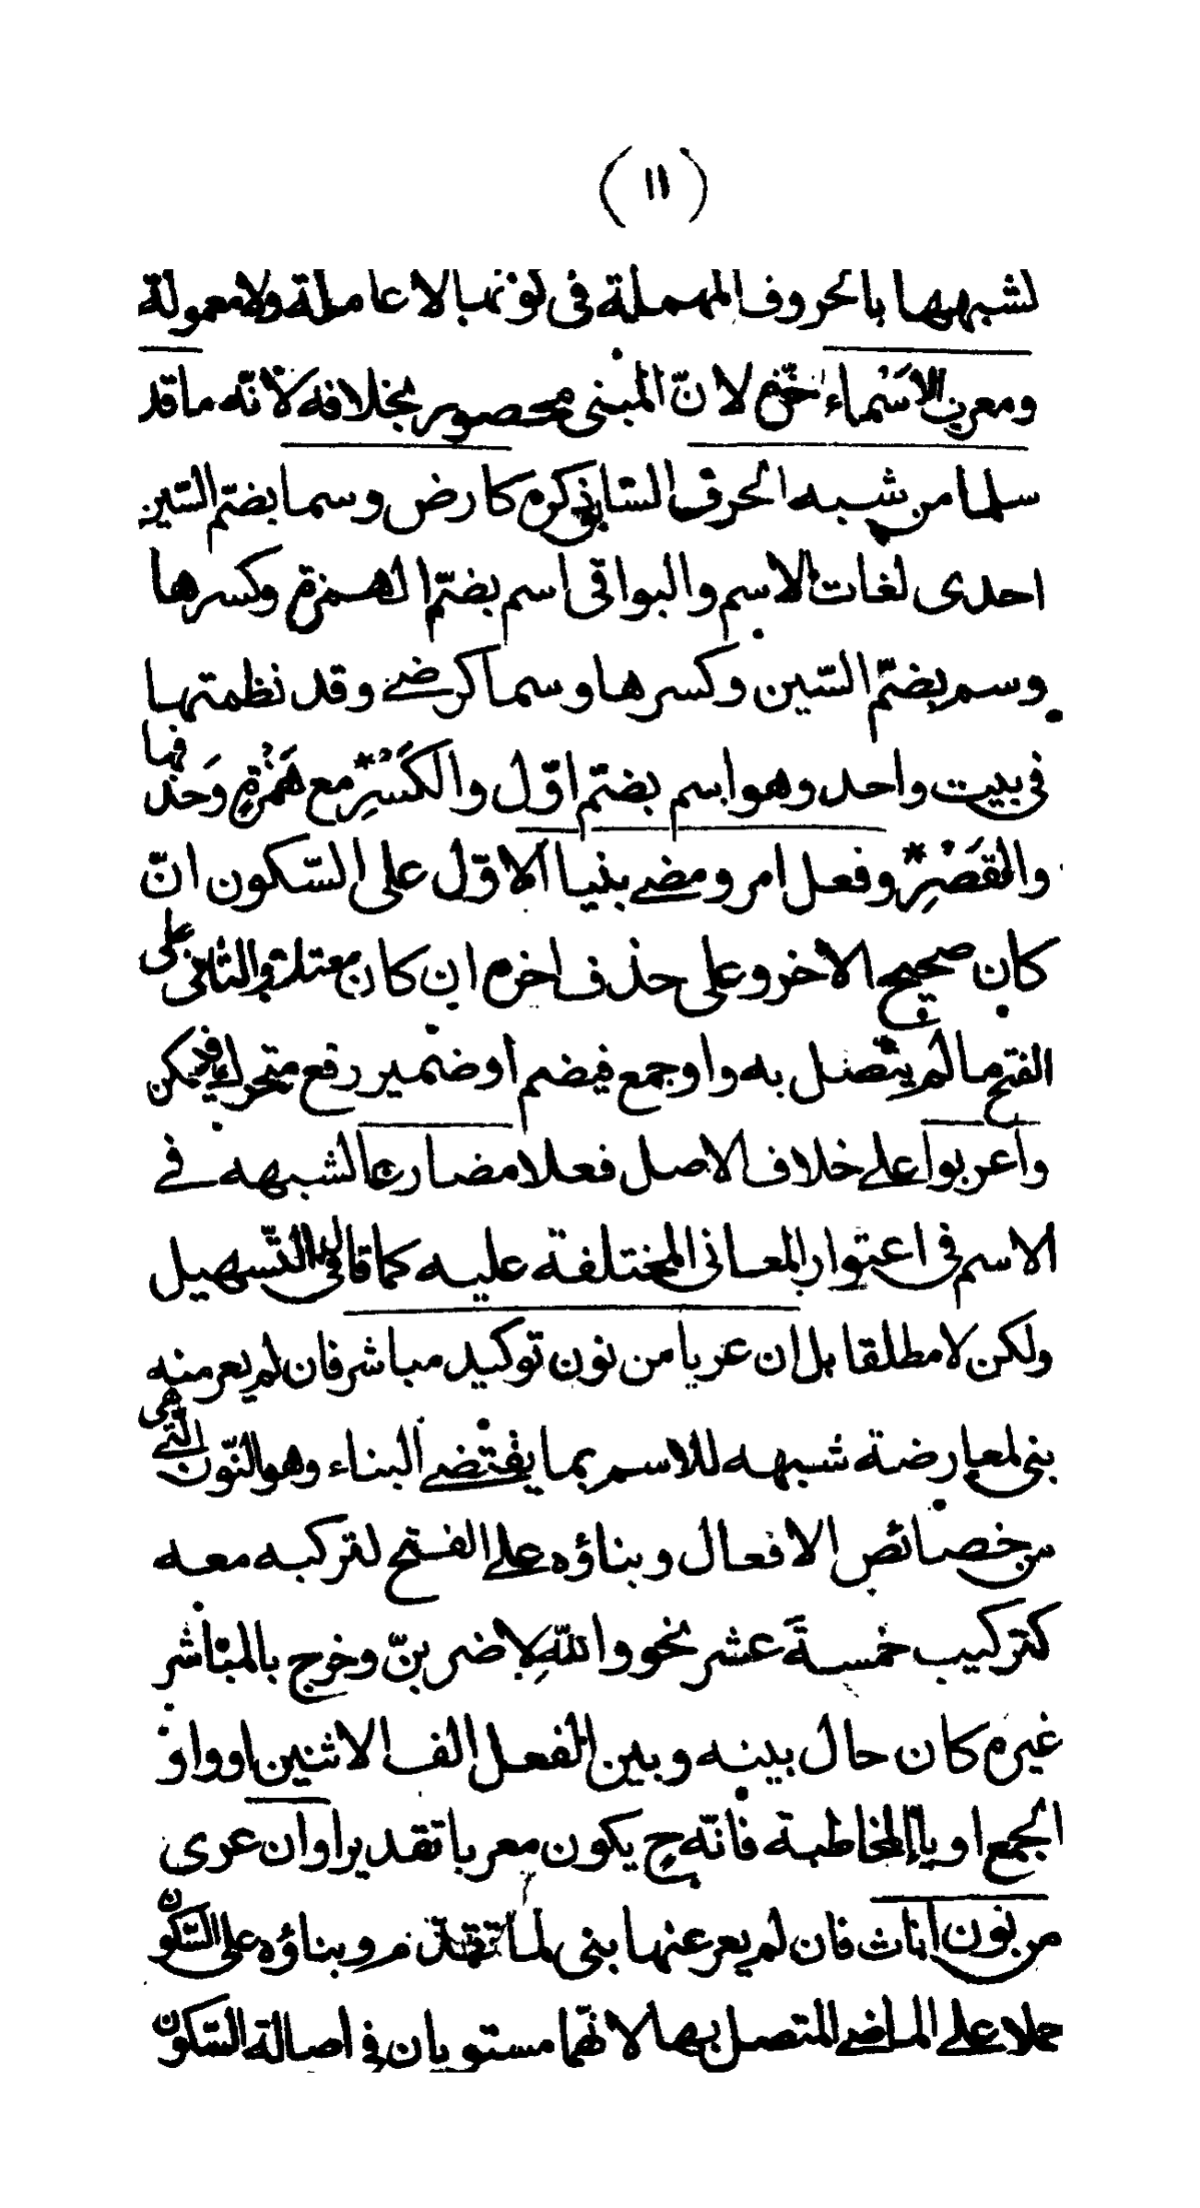 (١١)
لشبهها بالحروف المهملة فى كونها لا عاملة ولا معمولة
ومعرب الاَسْماء لانّ المبنى محصور بخلافه لانّه ما قد
سلما من شبه الحرف السّابق ذكره كارض وسما بضمّ السّين
احدى لغات الاسم والبواقى اسم بضمّ الهمزة وكسرها
وسم بضمّ السّين وكسرها وسما كرضى وقد نظمتها
فى بيت واحد وهو اسم بضمّ اوّل والكَسْرِ * مع هَمْزَةٍ وَحَذْفها
والقَصْرِ * وفعل امر ومضى بنيا الاوّل على السّكون انّ
كان صحيح الاخر وعلى حذف اخره ان كان معتلا والثانى على
الفتح ما لم يتّصل به واو جمع فيضم او ضمير رفع متحرك فيسكن
واعربوا على خلاف الاصل فعلا مضارعا لشبهه فى
الاسم فى اعتوار المعانى المختلفة عليه كما قال فى التّسهيل
ولكن لا مطلقا بل ان عريا من نون توكيد مباشر فان لم يعر منه
بنى لمعارضة شبهه للاسم بما يقتضى البناء وهو النّون التى هى
من خصائص الافعال وبناؤه على الفتح لتركبه معه
كتركيب خمسةَ عشر نحو واللّهِ لاضربنّ وخرج بالمباشر
غيره كان حال بينه وبين الفعل الف الاثنين او واو
الجمع او ياء المخاطبة فانّه ح يكون معربا تقديرا وان عرى
من نون اناث فان لم يعر عنها بنى لما تقدّم وبناؤه على السّكون
حملا على الماضى المتصل بها لانّهما مستويان فى اصالة السّكون